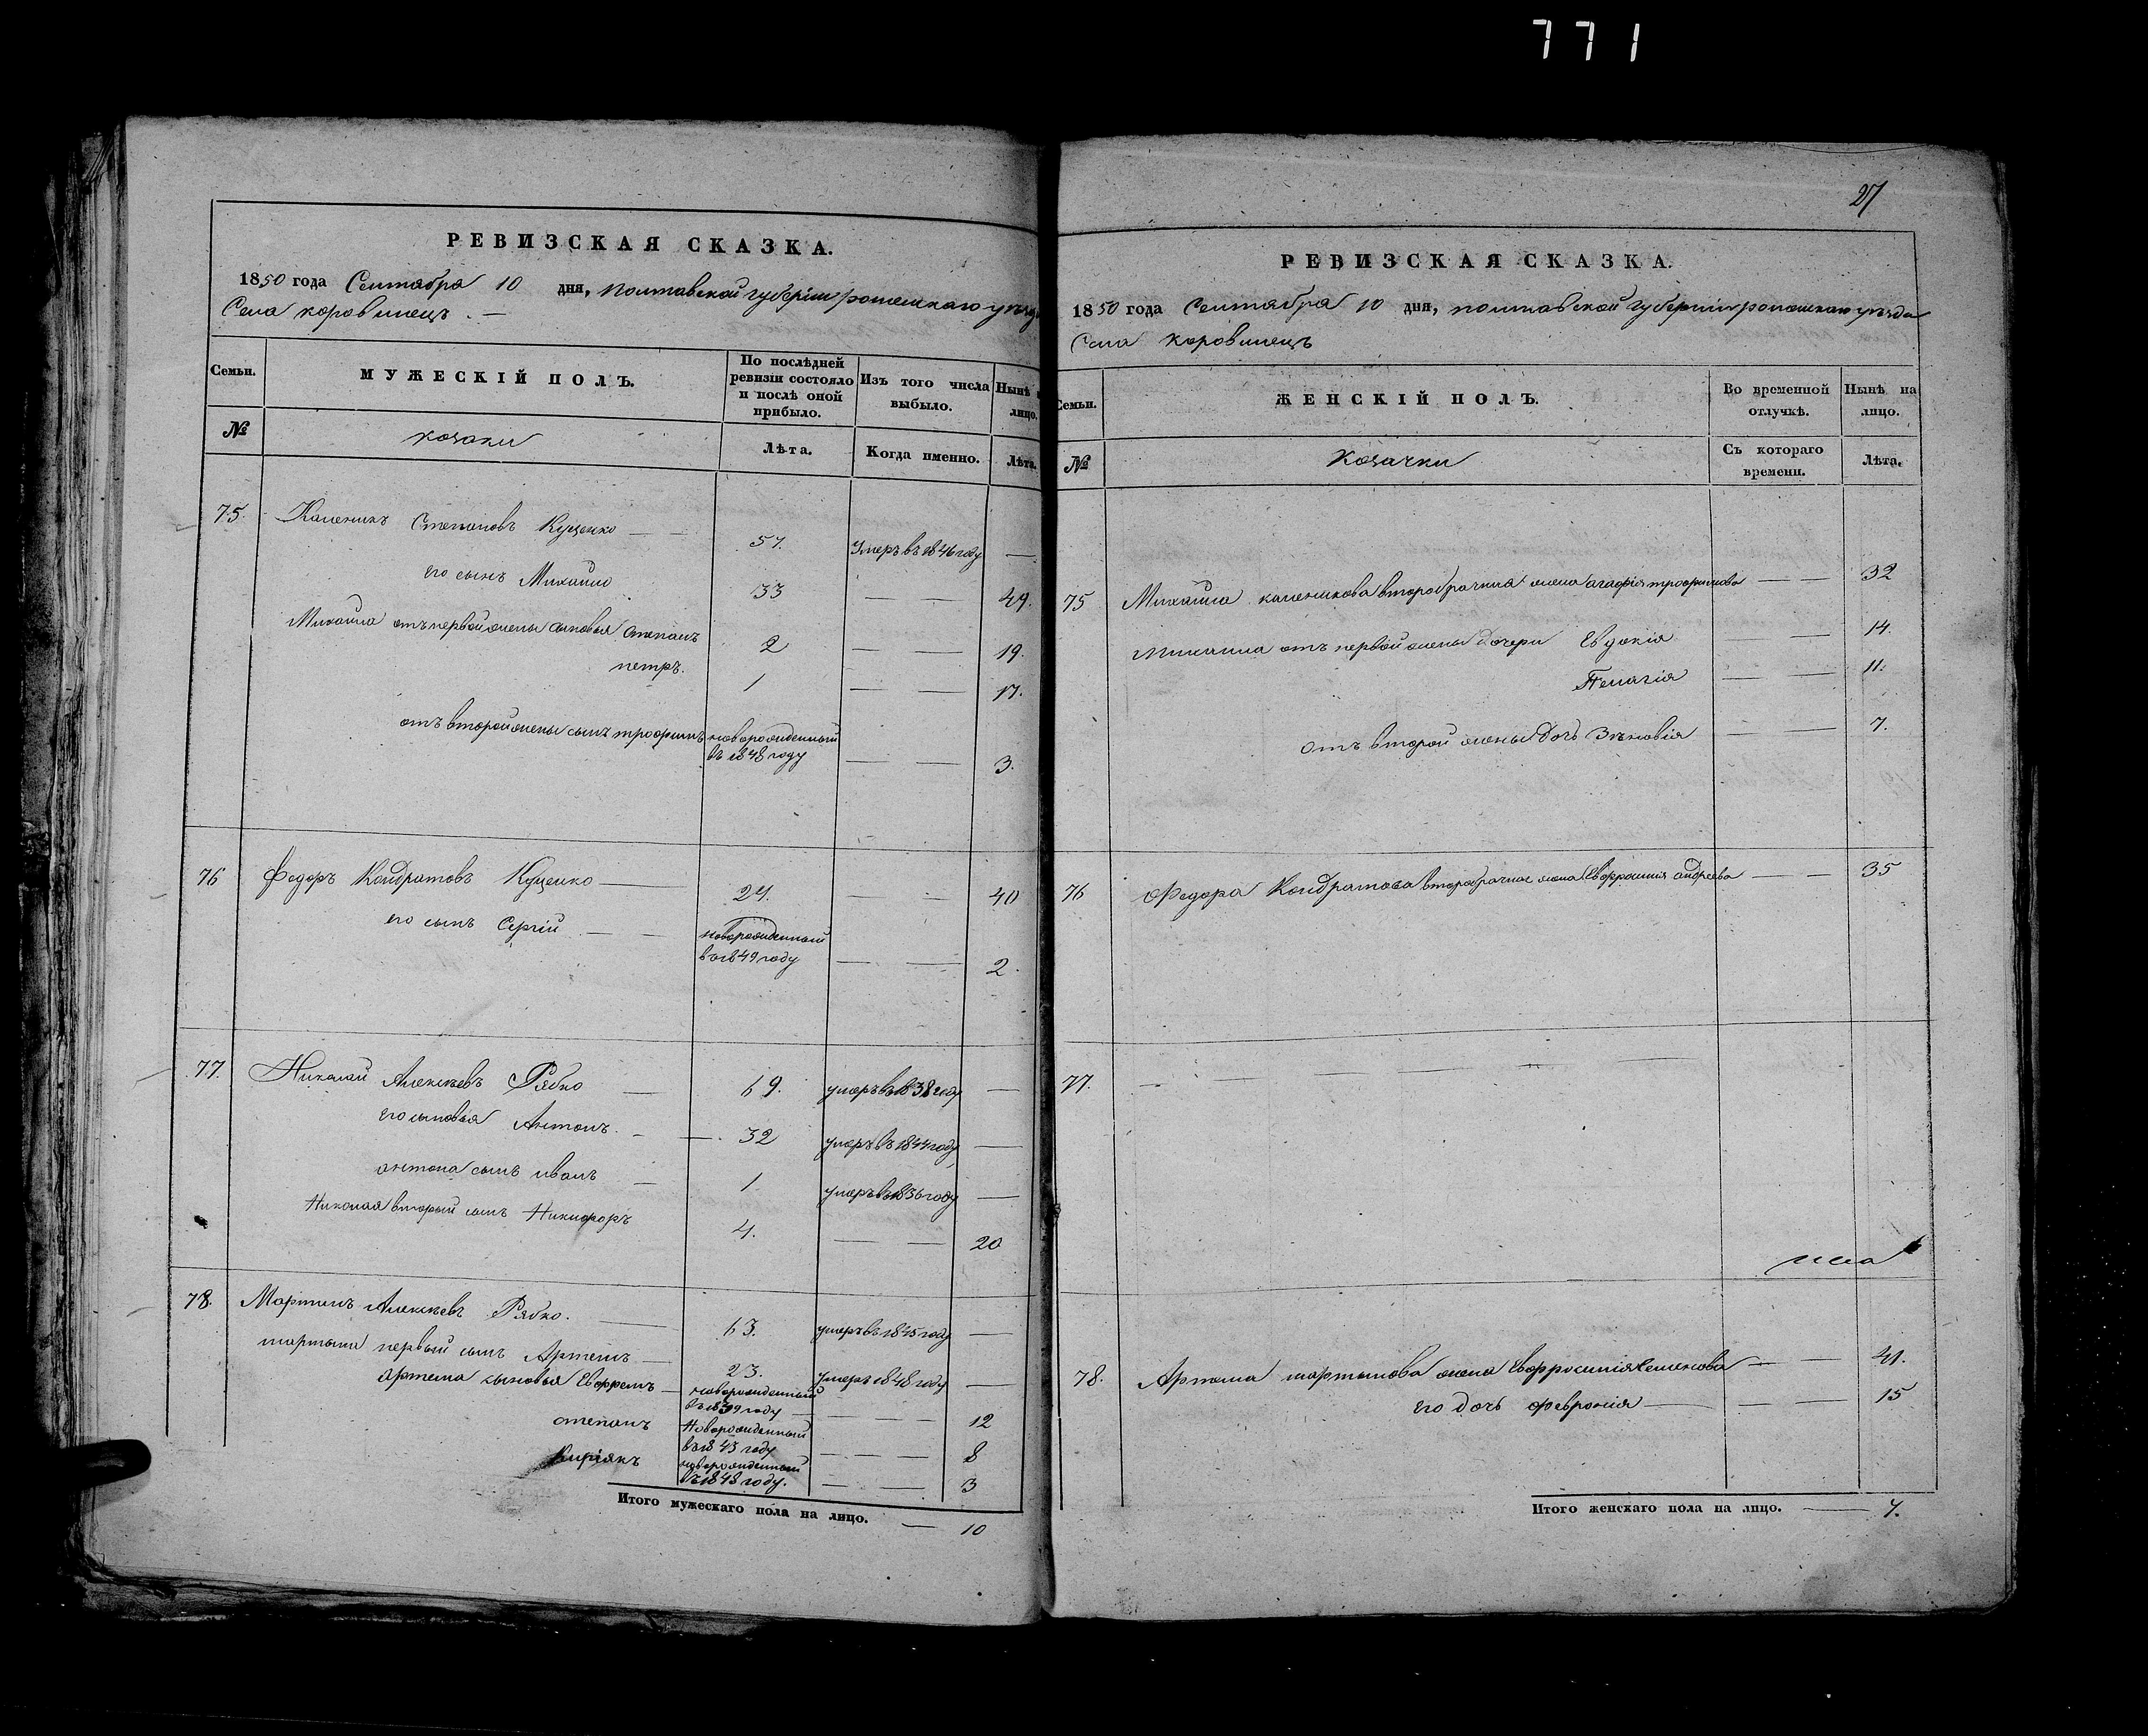 771
РЕВИЗСКАЯ СКАЗКА.
1850 года Сентября 10 дня, полтавской губерніи роменскаго уѣзда
Села коровинецъ. —
Семьи.
МУЖЕСКІЙ ПОЛЪ.
По послѣдней ревизіи состояло и послѣ оной прибыло.
Изъ того числа выбыло.
Нынѣ на лицо.
№
козаки
Лѣта.
Когда именно.
Лѣта.
75. Каленикъ Степановъ Куценко — 57. Умеръ въ 1846 году —
его сынъ Михайло 33 — — 49.
Михайла отъ первой жены сыновья Степанъ 2 — — 19.
петръ. 1 — — 17.
отъ второй жены сынъ трофимъ новорожденный въ 1848 году — — 3.
76 Федоръ Кондратовъ Куценко — 24. — — 40
его сынъ Сергій — — новорожденный въ 1849 году — — 2.
77. Николай Алексѣевъ Рябко — 69. умеръ въ 1838 году —
его сыновья Антонъ. — — 32 умеръ въ 1844 году —
антона сынъ иванъ — 1 умеръ въ 1836 году —
Николая вторый сынъ Никифоръ 4. — — 20
78. Мартинъ Алексѣевъ Рябко. — 63. умеръ въ 1845 году —
мартына первый сынъ Артемъ — 23. умеръ 1848 году —
артема сыновья Евфремъ — новорожденный въ 1839 году — — 12
степанъ Новорожденный въ 1843 году — — 8
Киріякъ новорожденный въ 1848 году. — — 3
Итого мужескаго пола на лицо. — 10
27
РЕВИЗСКАЯ СКАЗКА.
1850 года Сентября 10 дня, полтавской губерніи роменскаго уѣзда
Села коровинецъ
Семьи.
ЖЕНСКІЙ ПОЛЪ.
Во временной отлучкѣ.
Нынѣ на лицо.
№
Козачки
Съ котораго времени.
Лѣта.
75 Михайла каленикова второбрачная жена агафія трофимова — — 32
Михайла отъ первой жены дочери Евдокія — 14.
Пелагія — — 11.
отъ второй жены дочь Зѣновія — — 7.
76 Федора Кондратова второбрачная жена Евфросинія андреева — — 35
77. — — — — —
78. Артема мартынова жена Евфросинія Семенова — — 41.
его дочь февронія — — — 15
Итого женскаго пола на лицо. — 7.